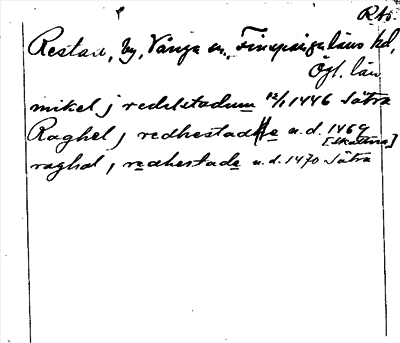 Rbr.
Restad, by, Vånga sn, Finspånga läns hd,
Ögl. län
mikel j redelstadum 12/1 1446 Sätra
Raghel j redhestadhe u.d. 1469
[Skattera]
raghol j redhestade u.d. 1470 Sätra